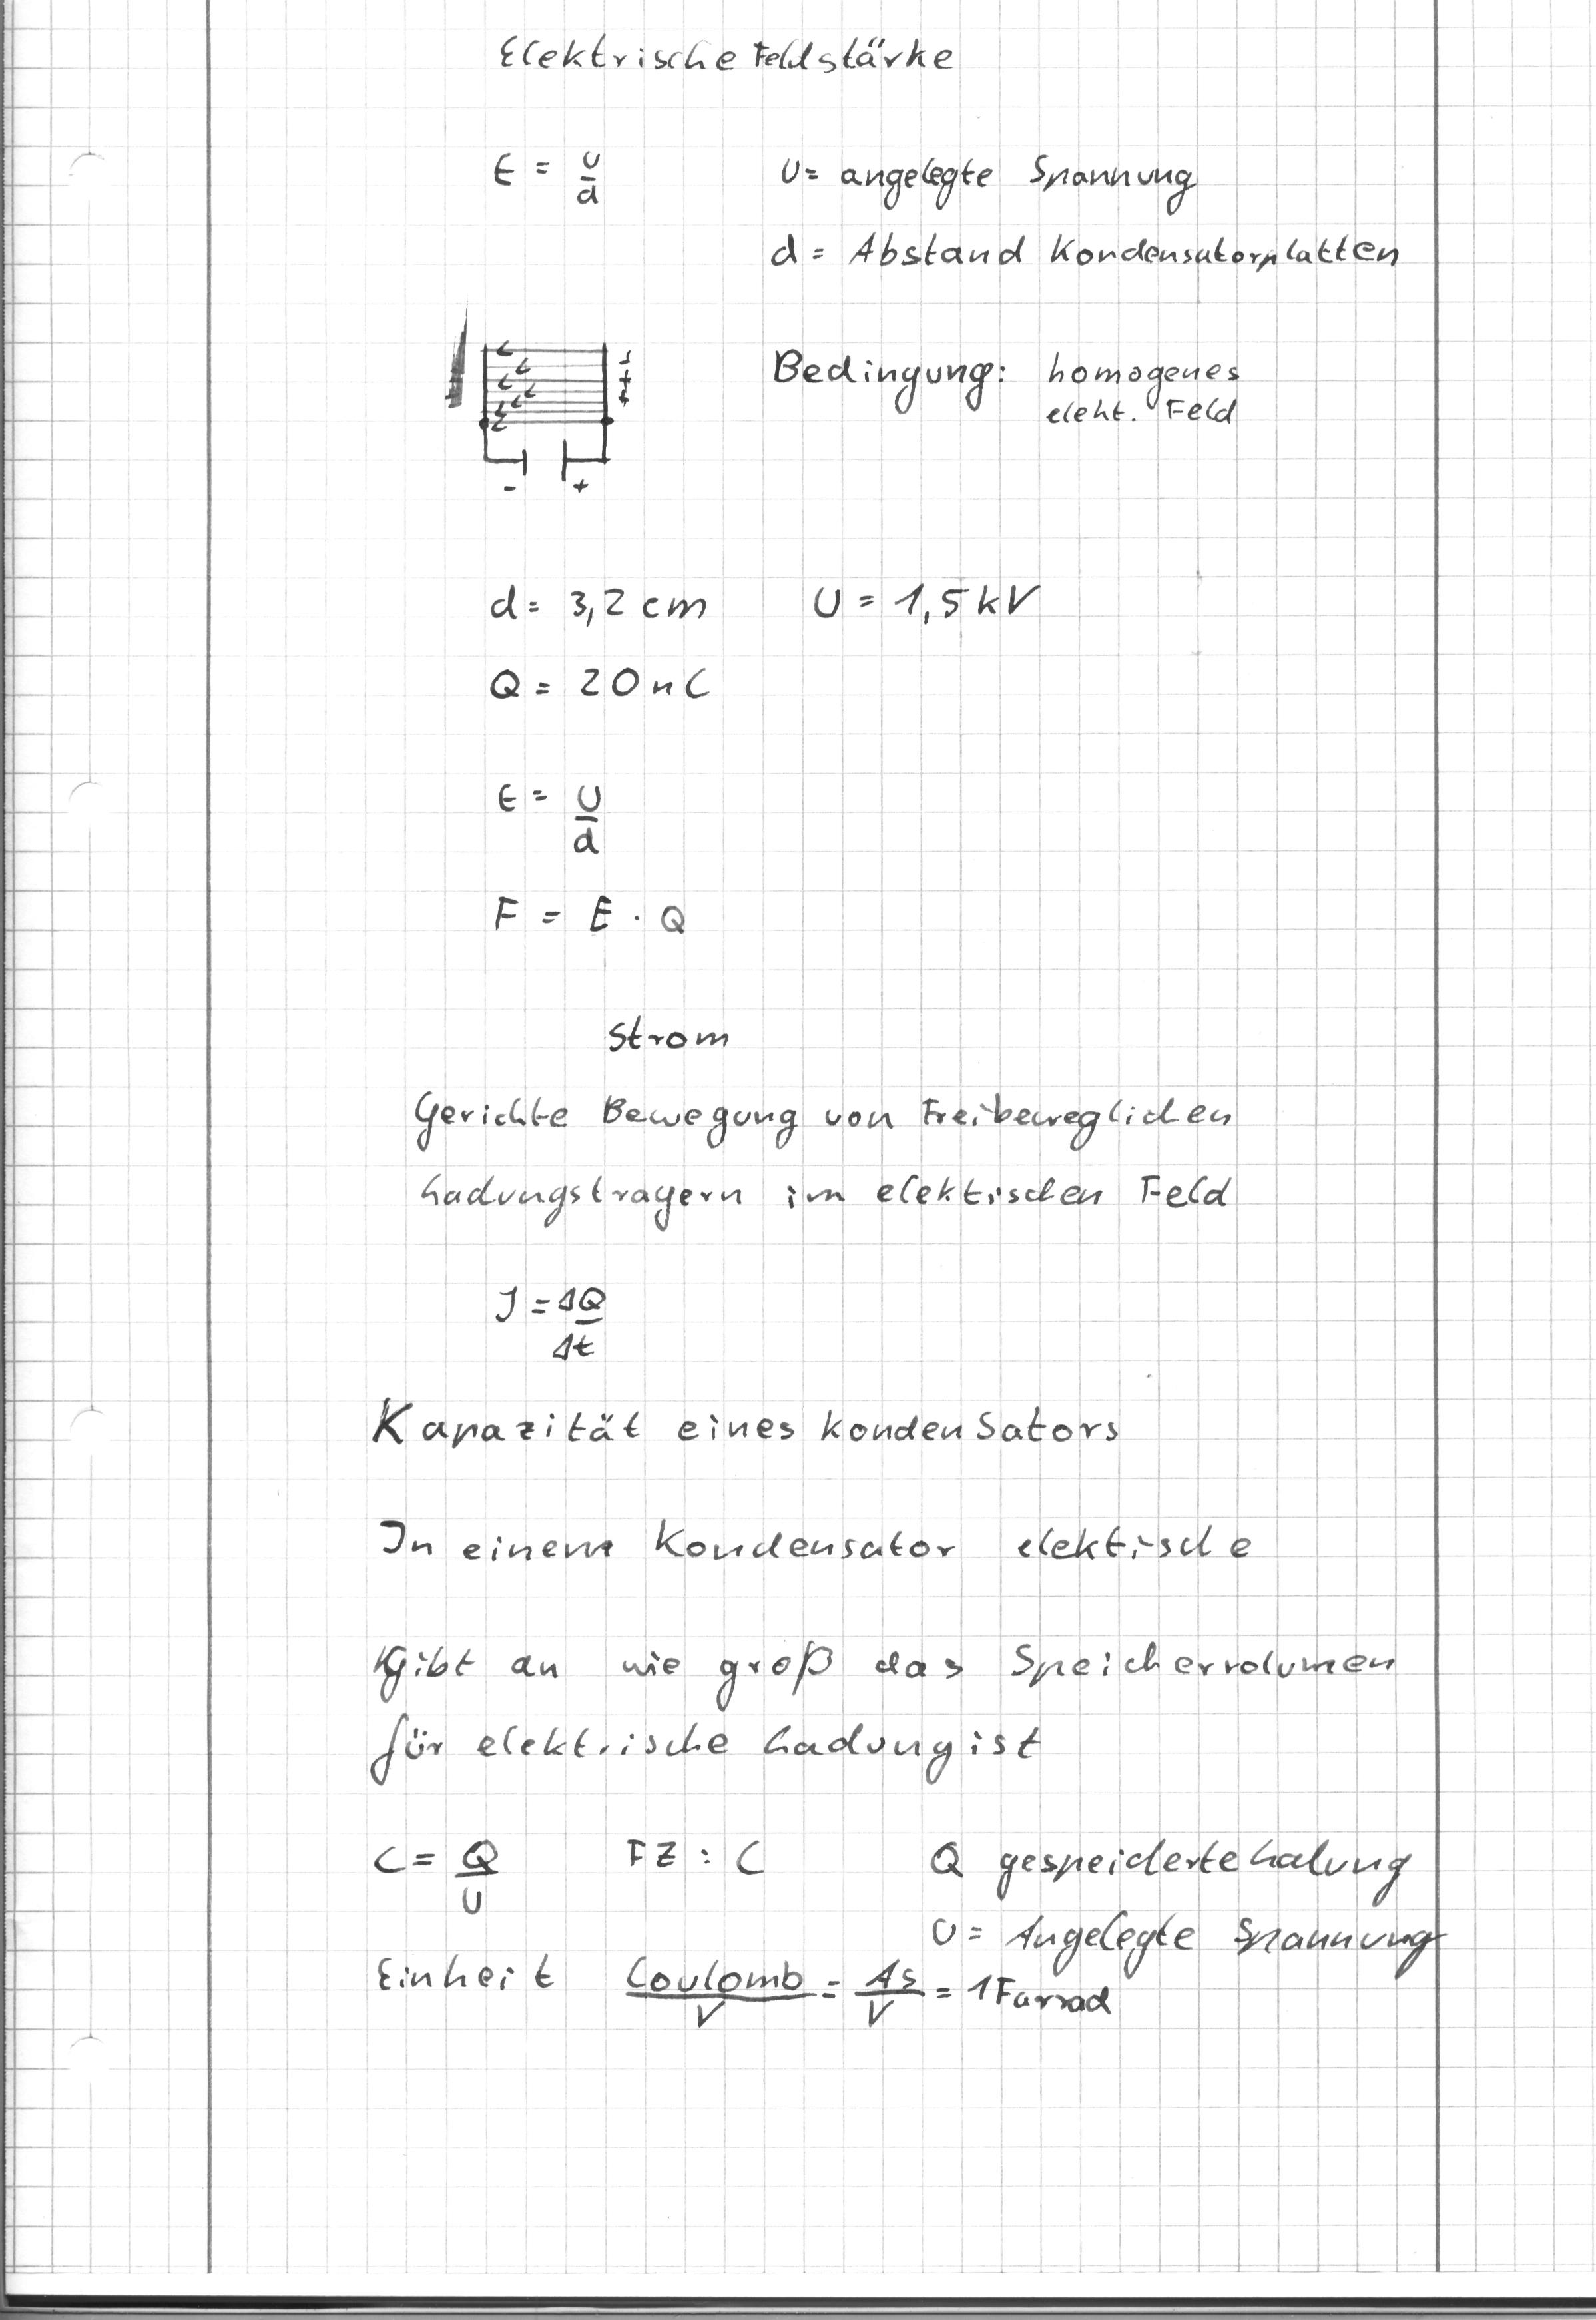 Elektrische Feldstärke
E = U/d U = angelegte Spannung
d = Abstand Kondensatorplatten
Bedingung: homogenes
elekt. Feld
- +
d = 3,2 cm U = 1,5 kV
Q = 20 nC
E = U/d
F = E · Q
Strom
Gerichte Bewegung von Freibeweglichen
Ladungstragern im elektischen Feld
I = ΔQ/Δt
Kapazität eines kondensators
In einem Kondensator elektische
gibt an wie groß das Speichervolumen
für elektrische Ladung ist
C = Q/U FZ : C Q gespeicherte Ladung
U = Angelegte Spannung
Einheit Coulomb/V = As/V = 1 Farrad